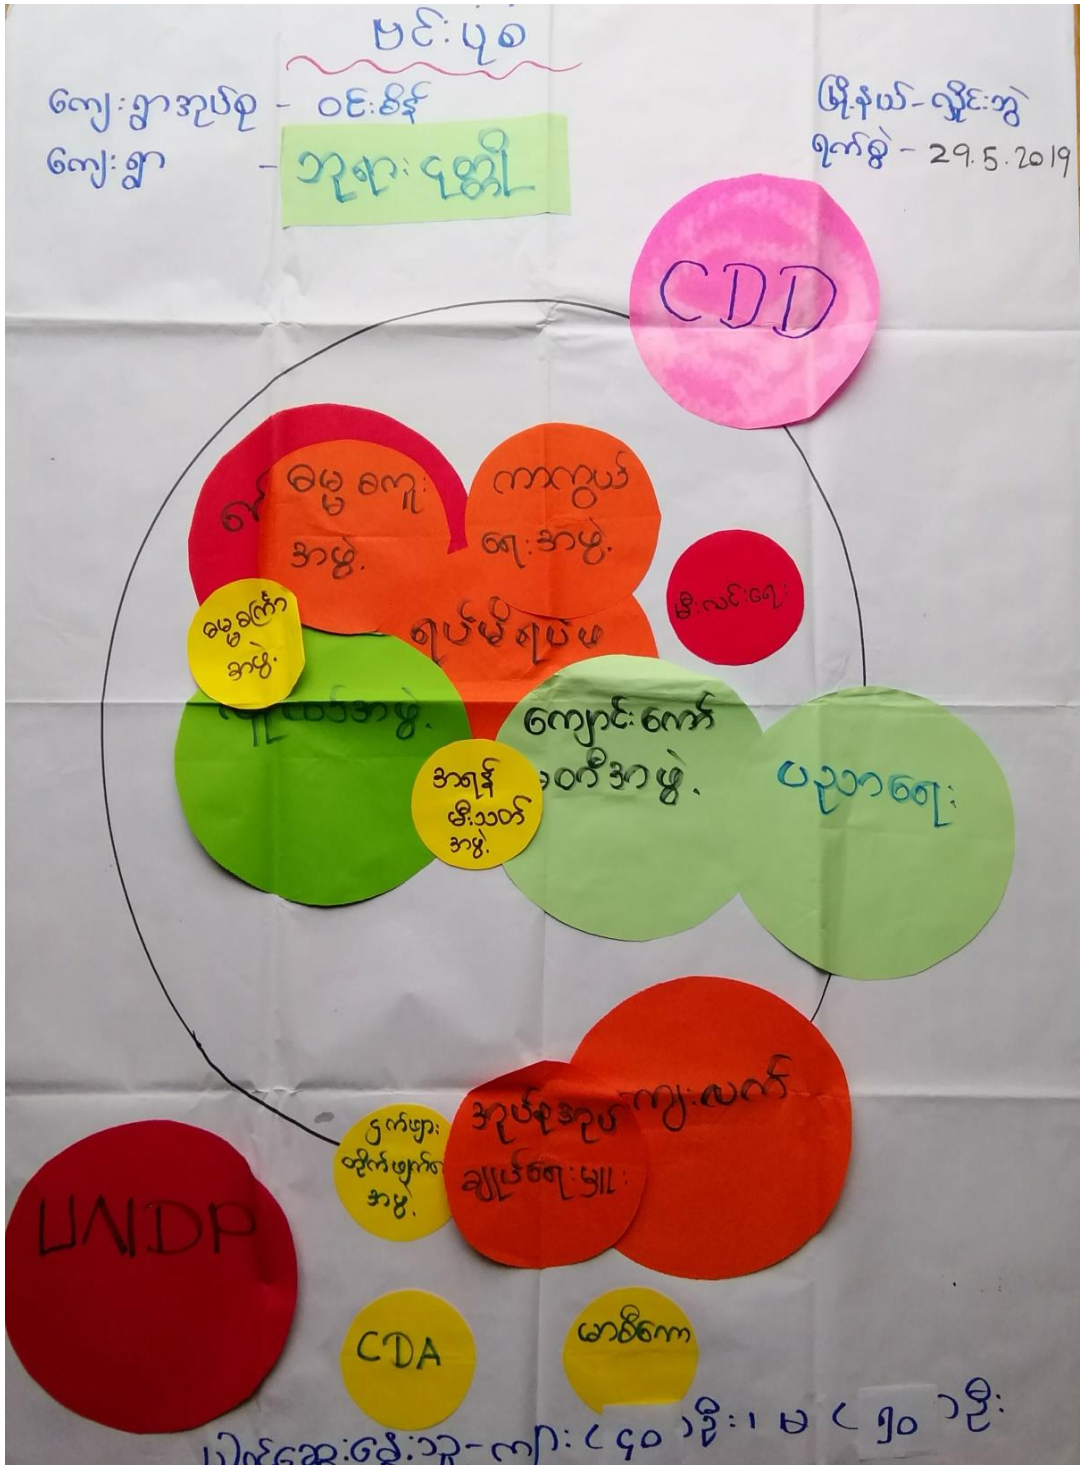 ဗင်းပုံစ
ကျေးရွာအုပ်စု - ဝင်းစိန်
မြို့နယ် - လှိုင်းဘွဲ
ကျေးရွာ - ဘုရားငုတ္တို
ရက်စွဲ - 29.5.2019
CDD
ဓမ္မစကူး
အဖွဲ့
ကာကွယ်
ရေးအဖွဲ့
မီးလင်းရေး
ဓမ္မစင်္ကြာ
အဖွဲ့
ရပ်မိရပ်ဖ
ကျောင်းကော်
အဖွဲ့
ပညာရေး
အရန်
မီးသတ်
အဖွဲ့
ကျးလက်
အုပ်စုအုပ်
ချုပ်ရေးမှူး
ငှက်ဖျား
တိုက်ဖျက်ရေး
အဖွဲ့
UNDP
CDA
မာစီကော
ပါဝင်ဆွေးနွေးသူ - ကျား (၄၀) ဦး၊ မ (၅၀) ဦး